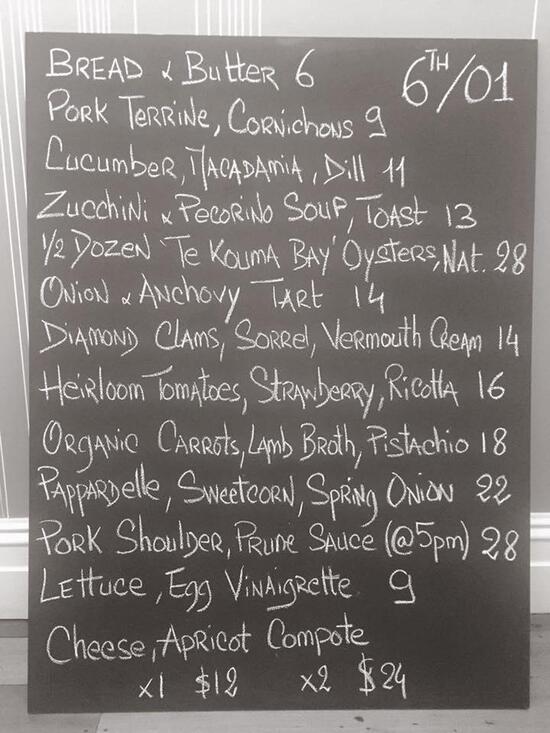 Bread & Butter 6
6TH/01
Pork Terrine, Cornichons 9
Cucumber, Macadamia, Dill 11
Zucchini & Pecorino Soup, Toast 13
1/2 Dozen 'Te Kouma Bay' Oysters, Nat. 28
Onion & Anchovy Tart 14
Diamond Clams, Sorrel, Vermouth Cream 14
Heirloom Tomatoes, Strawberry, Ricotta 16
Organic Carrots, Lamb Broth, Pistachio 18
Pappardelle, Sweetcorn, Spring Onion 22
Pork Shoulder, Prune Sauce (@5pm) 28
Lettuce, Egg Vinaigrette 9
Cheese, Apricot Compote
x1 $12 x2 $24